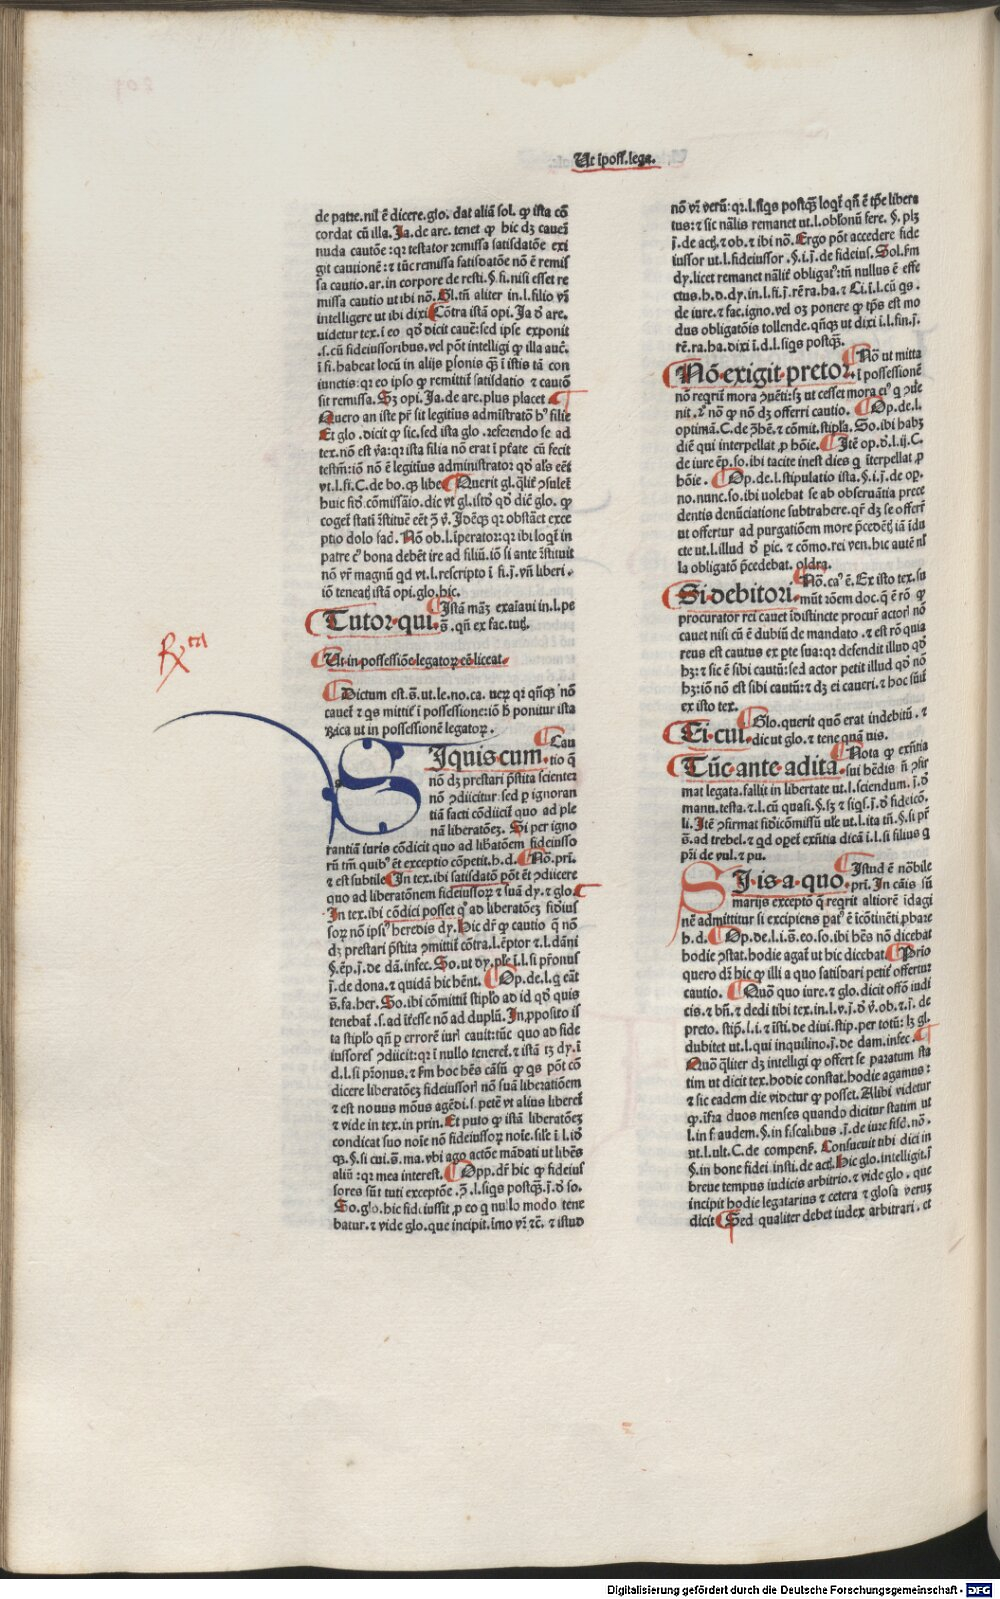 Ut ipoſſ.lega.
de patre.nil ē dicere.glo.dat aliā ſol. ꝙ iſta cō
cordat cū illa. Ja.de are. tenet ꝙ hic dꝫ caueri
nuda cautōe:qꝛ teſtator remiſſa ſatiſdatōe exi
git cautionē:⁊ tūc remiſſa ſatiſdatōe nō ē remiſ
ſa cautio.ar.in corpore de reſti.§.ſi.niſi eſſet re
miſſa cautio ut ibi nō. Gl.tn̄ aliter in.l.filio vr̄
intelligere ut ibi dixi Cōtra iſtā opi. Ja ď are.
uidetur tex.i eo qď dicit cauē:ſed ipſe exponit
.ſ.cū fideiuſſoribus.vel pōt intelligi ꝙ illa auē.
ī fi.habeat locū in alijs ꝑſonis qͣꝫ ī iſtis tā con
iunctis:qꝛ eo ipſo ꝙ remittit̄ ſatiſdatio ⁊ cautō
ſit remiſſa. Sꝫ opi. Ja.de are.plus placet
Quero an iſte pr̄ ſit legitius admīſtratōꝛ hꝰ filie
Et glo.dicit ꝙ ſic.ſed iſta glo.referendo ſe ad
tex.nō eſt ṽa:qꝛ iſta filia nō erat ī ptāte cū fecit
teſtm̄:iō nō ē legitius adminiſtrator qď als̄ eēt
vt.l.fi.C.de bo.qꝫ libe Querit gl.qͣlit̄ ꝯſulet̄
huic fidō.cōmiſſaīo.dic vt gl.iſtď qď dic̄ glo. ꝙ
coget̄ ſtatī r̄ſtituē
ptio dolo fac̄. Nō ob.l.īperator:qꝛ ibi loqt̄ in
patre cꝰ bona debēt ire ad filiū.iō ſi ante r̄ſtituit
nō vr̄ magnū qd vt.l.reſcripto ī fi.j.vn̄ liberi.
iō teneatꝭ iſtā opi.glo.hic.
Tutor.qui. Iſtā māꝫ exaīaui in.l.pe
s̄.qn̄ ex fac.tutꝭ.
Ut in poſſeſſiōe legatoꝝ eō liceat.
Dictum eſt.s̄.ut.le.no.ca. ueꝝ qꝛ qn̄qꝫ nō
cauet̄ ⁊ qs mittit̄ ī poſſeſſione:iō ħ ponitur iſta
ꝶica ut in poſſeſſionē legatoꝝ.
Rx
SIquis cum. Cau
tio q̄
nō dꝫ preſtari p̄ſtita ſcienter
nō ꝯdiicitur:ſed ꝑ ignoran
tiā facti cōdiicit̄ quo ad ple
nā liberatōeꝫ. Si per igno
rantiā iuris cōdicit quo ad lib̄atōem fideiuſſo
rū tm̄ quibꝰ ēt exceptio cōpetit.h.d. Nō.prī.
⁊ eſt ſubtile In tex.ibi ſatiſdatō pōt ēt ꝯdiicere
quo ad liberatōnem fideiuſſoꝝ ⁊ ſuā dy.⁊ glo.
In tex.ibi cōdici poſſet qͥ ad liberatōeꝫ fidiuſ
ſoꝝ nō ipſiꝰ heredis dy. Hic dr̄ ꝙ cautio q̄ nō
dꝫ preſtari p̄ſtita ꝯmittit̄ cōtra.l.ēptor ⁊.l.dāni
§.ēp.j.de dā.infec. So.ut dy.ple ī.l.ſi pr̄onus
j.de dona.⁊ quidā hic bēnt. Op.de.l.q eāt
s̄.fa.her. So.ibi cōmittit̄ ſtipl̄o ad id qď quis
tenebat̄.ſ.ad īt̄eſſe nō ad duplū. In ꝓpoſito iſ
ta ſtipl̄o qn̄ ꝑ errorē iurī cauit:tūc quo ad fide
iuſſoreſ ꝯdiicit:qꝛ ī nullo teneret̄.⁊ iſtā rꝫ dy.ī
d.l.ſi pr̄onus.⁊ ẜm hoc hēns cāſū ꝙ qs pōt cō
dicere liberatōeꝫ fideiuſſorī nō ſuā liberatiōem
⁊ eſt nouus mōus agēdi.ſ.petē vt alius libereť
⁊ vide in tex.in prin. Et puto ꝙ iſtā liberatōeꝫ
condicat ſuo noīe nō fideiuſſoꝝ noīe.ſil̄e ī.l.iď
qꝫ.§.ſi cui.s̄.ma.vbi ago actōe mādati ut libēs
aliū:qꝛ mea intereſt. Opp.dr̄ hic ꝙ fideiuſ
ſores ſūt tuti exceptōe.ꝯ̄.l.ſiqs poſtqͣꝫ.j.ď ſo.
So.glo.hic fideiuſſit ꝓ eo q nullo modo tene
batur.⁊ vide glo.que incipit.īmo vr̄ ⁊c̄.⁊ iſtud
nō vr̄ verū:qꝛ.l.ſiqs poſtqͣꝫ loqt̄ qn̄ ē tp̄e libera
tus:⁊ ſic nālis remanet ut.l.obl̄onū fere.§.plꝫ
j̄.de actꝭ ⁊ ob.⁊ ibi nō. Ergo pōt accedere fide
iuſſor ut.l.fideiuſſor.§.i.j̄.de fideiuſ. Sol.ẜm
dy.licet remanet nālit̄ obligatꝰ:tn̄ nullus ē effe
ctus.h.d.dy.in.l.fi.j̄.rē ra.ha.⁊ L.i.l.cū qs.
de iure.⁊ fac.igno.vel oꝫ ponere ꝙ tp̄s eſt mo
dus obligatōis tollende.qn̄qꝫ ut dixi ī.l.fin.j̄.
rē.ra.ha.dixi ī.d.l.ſiqs poſtqͣꝫ.
Nō.exigit.pretor. Nō ut mitta
t̄ ī poſſeſſionē
nō reqrit̄ mora ꝯuēti:ſꝫ ut ceſſet mora eiꝰ q ꝯue
nit. rͣ nō ꝙ nō dꝫ offerri cautio. Op.de.l.
optimā.C.de ꝯhē.⁊ cōmit.ſtipl̄a. So.ibi habꝫ
diē qui interpellat ꝓ hōie. Itē op.ď.l.ij.C.
de iure ēp.ſo.ibi tacite ineſt dies q īterpellat ꝓ
hōie. Op.de.l.ſtipulatio iſta.§.i.j̄.de op.
no.nunc.ſo.ibi uolebat ſe ab obſeruātia prece
dentis denūciatione ſubtrahere.qr̄ dꝫ ſe offerr̄
ut offertur ad purgatiōem more p̄cedētꝭ iā idu
cte ut.l.illud ď pic.⁊ cōmo.rei ven.hic autē nl̄
la obligatō p̄cedebat.oldra.
Si debitori. Nō.caꝰ ē. Ex iſto tex.ſu
mūt rōem doc.q̄ ē rō ꝙ
procurator rei cauet īdiſtincte procur̄ actorī nō
cauet niſi cū ē dubiū de mandato.⁊ eſt rō quia
reus eſt cautus ex pte ſua:qꝛ defendit illud qď
hꝫ:⁊ ſic ē ſibi cautū:ſed actor petit illud qď nō
hꝫ:iō nō eſt ſibi cautū:⁊ dꝫ ei caueri.⁊ hoc ſūit̄
ex iſto tex.
Ei cui. Glo.querit quō erat indebitū.⁊
dic ut glo.⁊ tene quā uis.
Tūc ante adita. Nota ꝙ exn̄tia
ſui hēdis n̄ ꝯfir
mat legata.fallit in libertate ut.l.ſciendum.j̄.ď
manu.teſta.⁊.l.cū quaſi.§.ſꝫ ⁊ ſiqſ.j̄.ď fideicō.
li. Itē ꝯfirmat fidicōmiſſū ul̄e ut.l.ita tn̄.§.ſi pr̄
s̄.ad trebel.⁊ qd opet̄ exn̄tia dicā ī.l.ſi filius q
pr̄i de vul.⁊ pu.
SI.is.a.quo. Iſtud ē nōbile
prī. In cāis ſū
marijs exceptō q̄ reqrit altiorē īdagi
nē admittitur ſi excipiens patꝰ ē icōtinētī ꝓbare
h.d. Op.de.l.i.s̄.eo.ſo.ibi hēs nō dicebat
hodie ꝯſtat.hodie agat̄ ut hic dicebat Prio
quero dꝫ hic ꝙ illi a quo ſatiſdari petit̄ offertur
cautio. Quō quo iure.⁊ glo.dicit offō iudi
cis.⁊ bn̄.⁊ dedi tibi tex.in.l.v.j̄.ď ṽ.ob.⁊.j̄.de
preto.ſtip̄.l.i.⁊ īſti.de diui.ſtip.per totū:lꝫ gl.
dubitet ut.l.qui inquilino.j̄.de dam.infec.
Quō qͣliter dꝫ intelligi ꝙ offert ſe paratum ſta
tim ut dicit tex.hodie conſtat.hodie agamus:
⁊ ſic eadem die videtur ꝙ poſſet. Alibi videtur
ꝙ.īfra duos menſes quando dicitur ſtatim ut
l.in fraudem.§.in fiſcalibus.j̄.de iure fiſci.nō.
ut.l.ult.C.de compenſ. Conſueuit tibi dici in
§.in bone fidei.inſti.de actꝭ. Hic glo.intelligit.ſ
breue tempus iudicis arbitrio.⁊ vide glo.que
incipit hodie legatarius ⁊ cetera ⁊ gloſa veruꝫ
dicit Sed qualiter debet iudex arbitrari.et
Digitalisierung gefördert durch die Deutsche Forschungsgemeinschaft - DFG